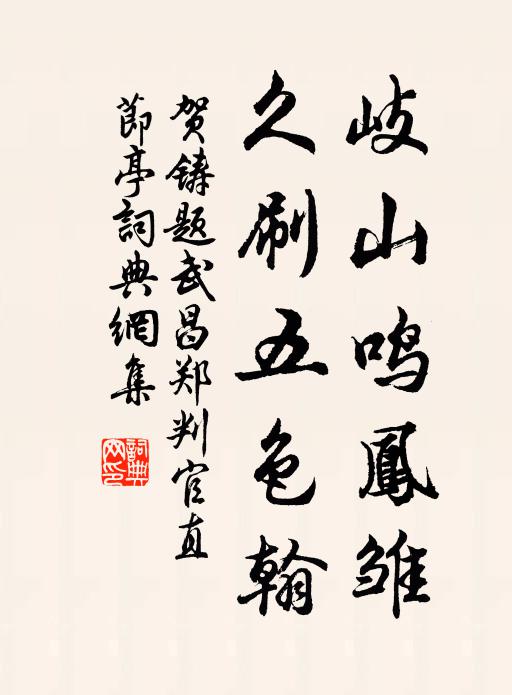 岐山鸣鳳雏
久刷五色翰
贺铸题武昌郑判官直
節亭詞典網集
詞典網印